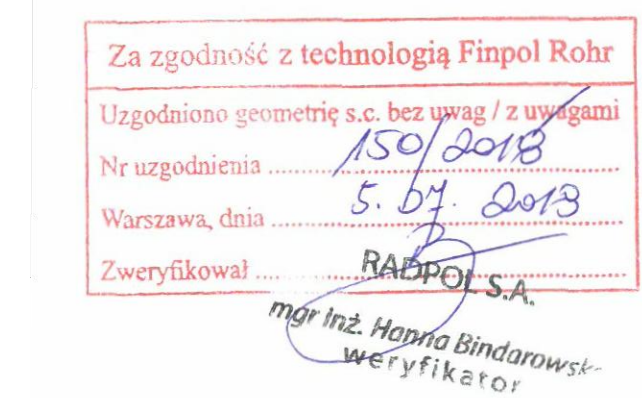 Za zgodność z technologią Finpol Rohr
Uzgodniono geometrię s.c. bez uwag / z uwagami
Nr uzgodnienia ..... 150/2013
Warszawa, dnia ..... 5. 07. 2013
Zweryfikował .....
RADPOL S.A.
mgr inż. Hanna Bindarowsk-
weryfikator